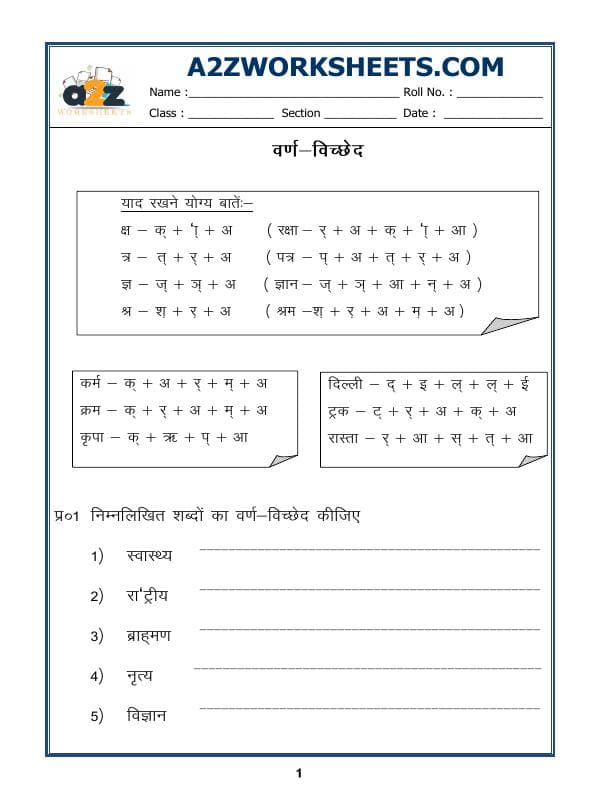 A2ZWORKSHEETS.COM
a2z
WORKSHEETS
Name :______________________________ Roll No. : ____________
Class : ____________ Section __________ Date : ______________
वर्ण–विच्छेद
याद रखने योग्य बातेंः–
क्ष – क् + ‘ा् + अ ( रक्षा – र् + अ + क् + ‘ा् + आ )
त्र – त् + र् + अ ( पत्र – प् + अ + त् + र् + अ )
ज्ञ – ज् + ञ् + अ ( ज्ञान – ज् + ञ् + आ + न् + अ )
श्र – श् + र् + अ ( श्रम –श् + र् + अ + म् + अ )
कर्म – क् + अ + र् + म् + अ
क्रम – क् + र् + अ + म् + अ
कृपा – क् + ऋ + प् + आ
दिल्ली – द् + इ + ल् + ल् + ई
ट्रक – ट् + र् + अ + क् + अ
रास्ता – र् + आ + स् + त् + आ
प्र०1 निम्नलिखित शब्दों का वर्ण–विच्छेद कीजिए
1) स्वास्थ्य
2) रा‘ट्रीय
3) ब्राह्मण
4) नृत्य
5) विज्ञान
1